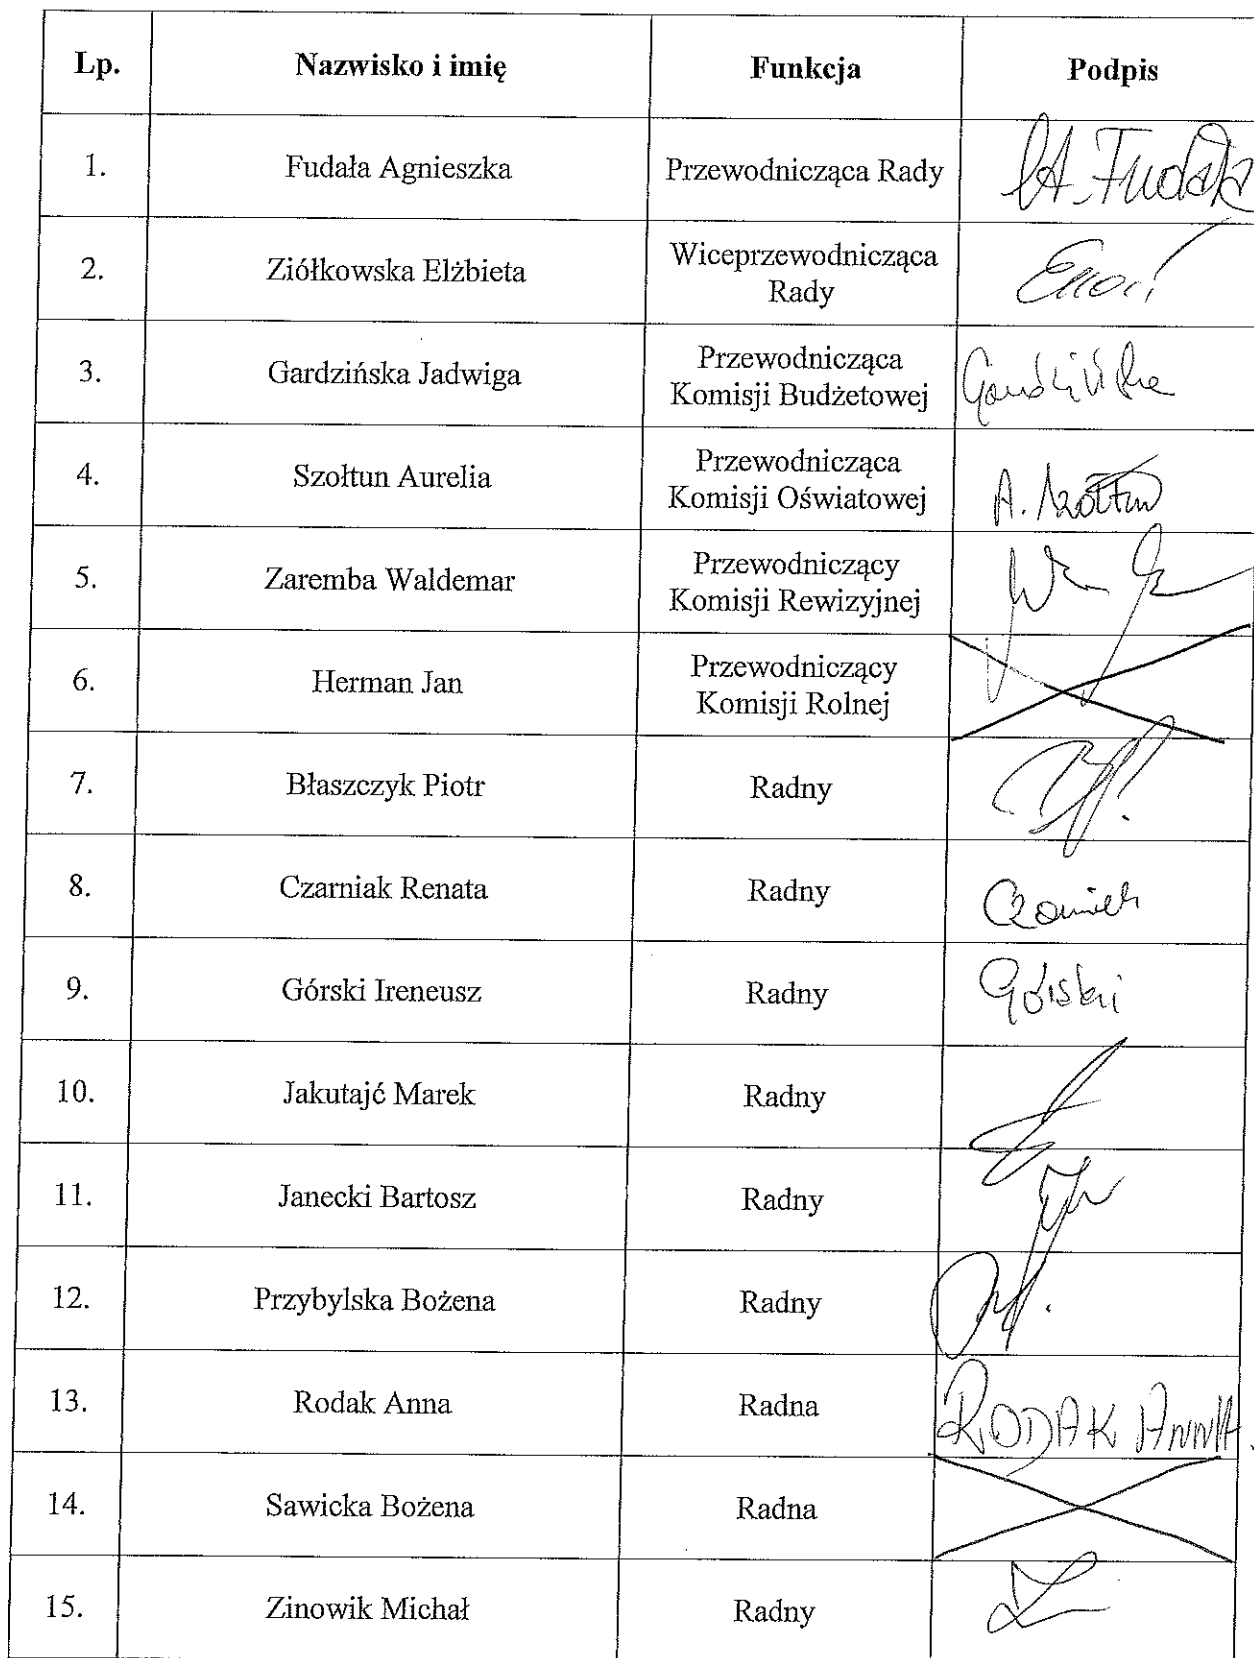 Lp. Nazwisko i imię Funkcja Podpis
1. Fudała Agnieszka Przewodnicząca Rady A. Fudała
2. Ziółkowska Elżbieta Wiceprzewodnicząca
Rady
3. Gardzińska Jadwiga Przewodnicząca
Komisji Budżetowej Gardzińska
4. Szołtun Aurelia Przewodnicząca
Komisji Oświatowej A. Szołtun
5. Zaremba Waldemar Przewodniczący
Komisji Rewizyjnej
6. Herman Jan Przewodniczący
Komisji Rolnej
7. Błaszczyk Piotr Radny
8. Czarniak Renata Radny Czarniak
9. Górski Ireneusz Radny Górski
10. Jakutajć Marek Radny
11. Janecki Bartosz Radny
12. Przybylska Bożena Radny
13. Rodak Anna Radna RODAK ANNA.
14. Sawicka Bożena Radna
15. Zinowik Michał Radny